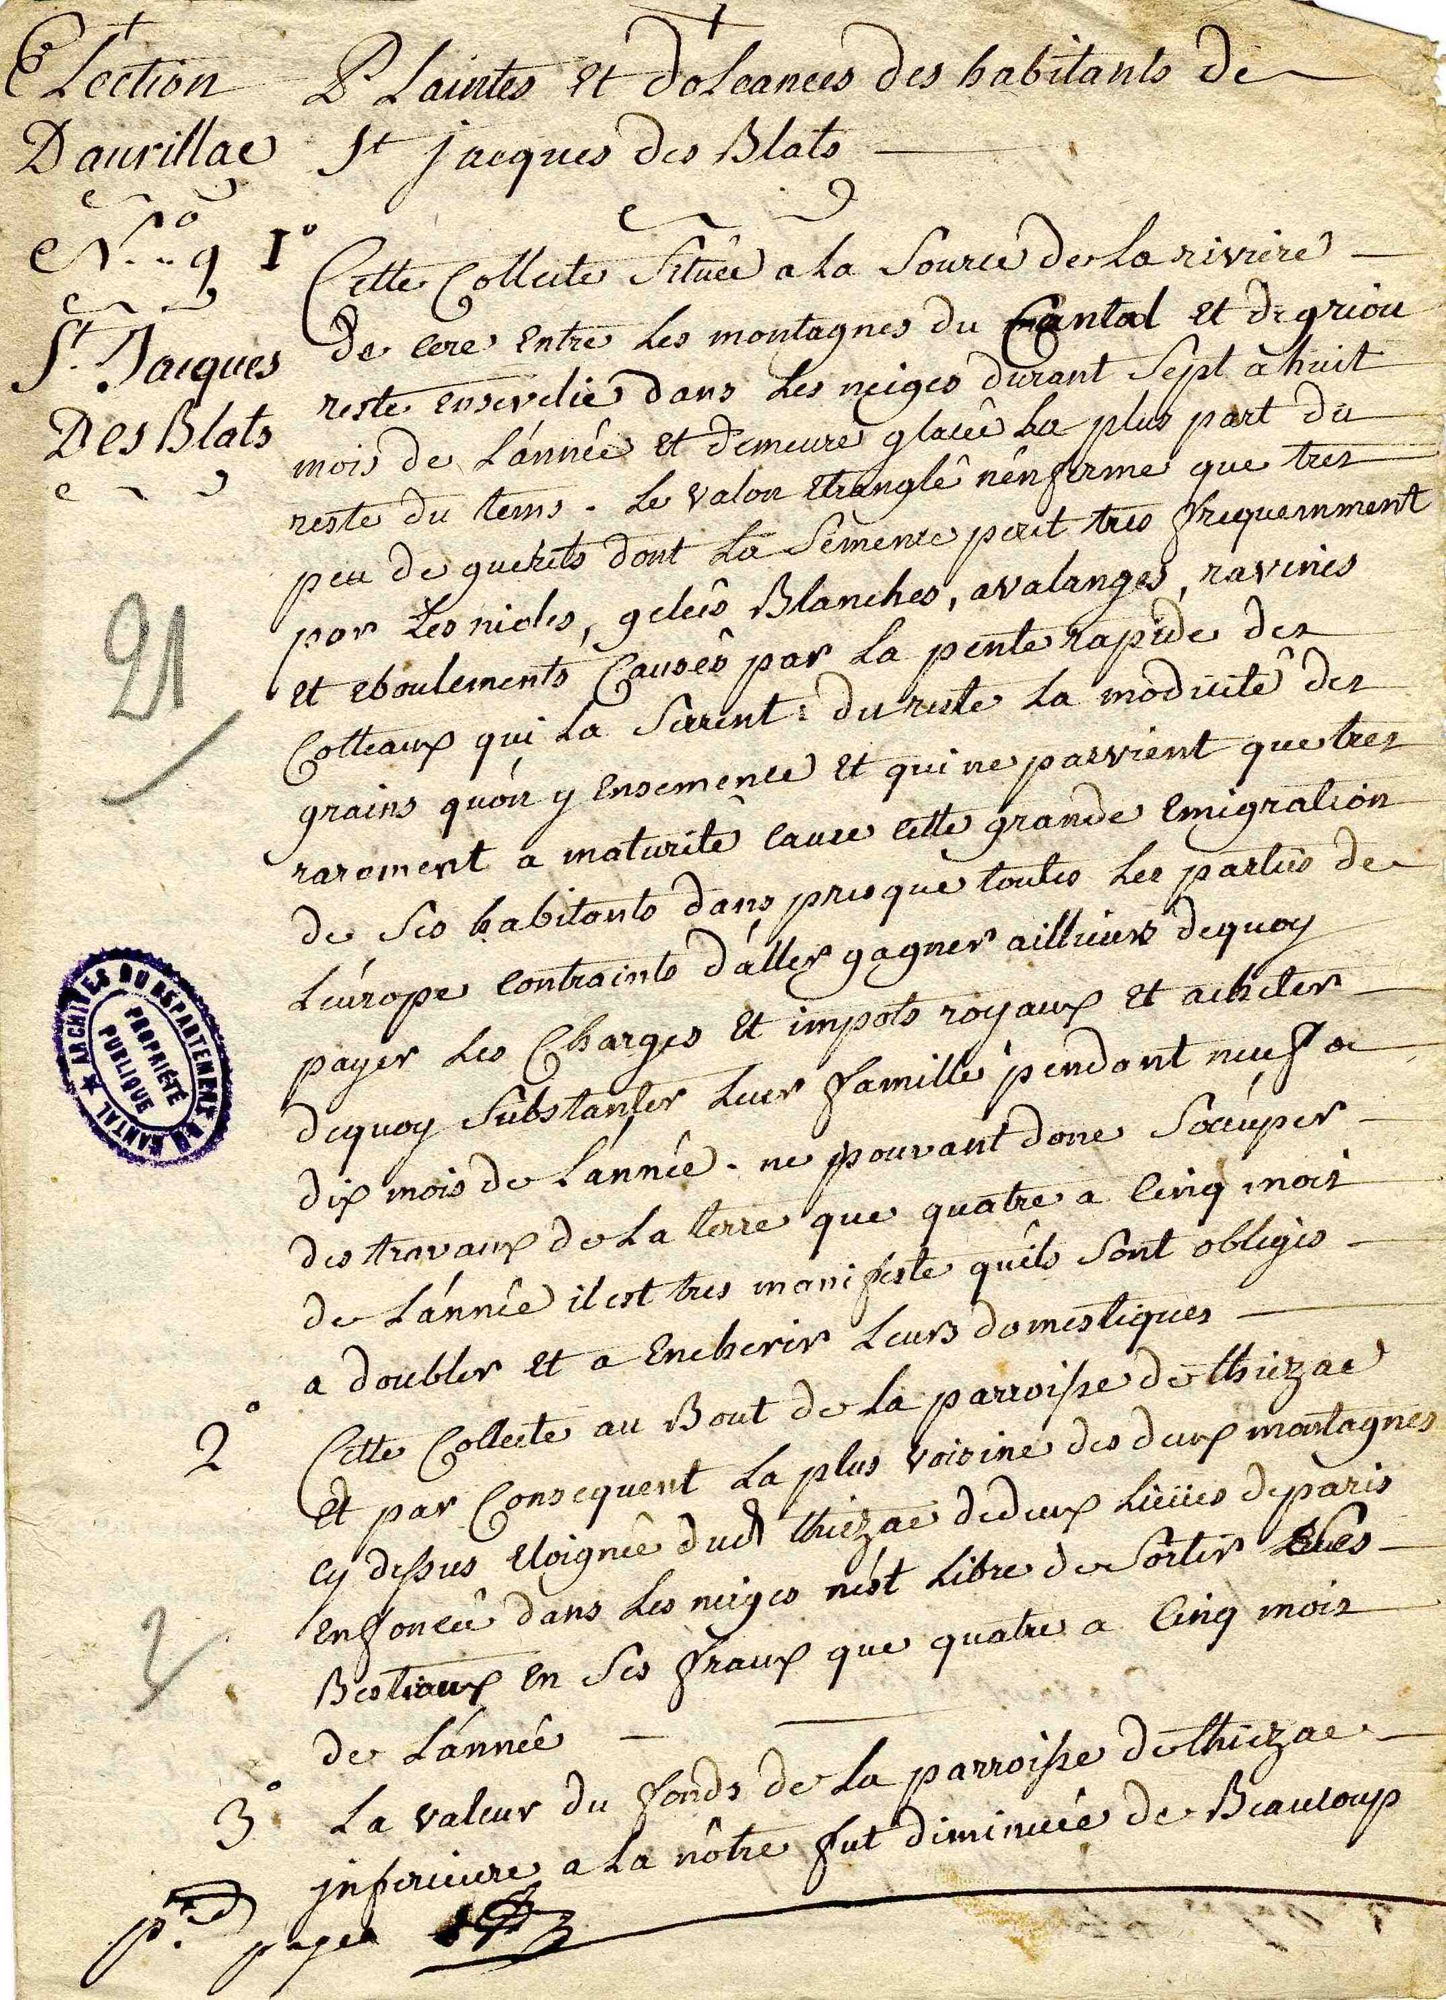 Election
Daurillac
N.° 9
St. Jacques
Des Blats
21
Plaintes et doleances des habitants de
St jacques des Blats
1° Cette Collecte Située a la Source de La riviere
de cere entre Les montagnes du Cantal et de griou
reste ensevelie dans Les neiges durant Sept à huit
mois de L'année et demeure glacée La plus part du
reste du tems. Le valon etranglé n'enferme que tres
peu de guerets dont La Semence perit tres frequemment
par Les nieles, gelées Blanches, avalanges, ravines
et eboulements Causés par La pente rapide des
Cotteaux qui La Serrent: du reste La modicité des
grains qu'on y ensemence et qui ne parvient que tres
rarement a maturité cause cette grande emigration
de Ses habitants dans presque toutes Les parties de
L'europe contraints d'aller gagner ailleurs dequoy
payer Les Charges et impots royaux et acheter
dequoy Substanter Leur famille pendant neuf a
dix mois de L'année. ne pouvant donc S'occuper
des travaux de La terre que quatre a Cinq mois
de L'année il est tres manifeste qu'ils Sont obligés
a doubler et a encherir Leurs domestiques
2° Cette Collecte au Bout de La parroisse de thiezac
et par Consequent La plus voisine des deux montagnes
cy dessus eloignée dud thiezac de deux Lieües de paris
enfoncée dans Les neiges n'est Libre de Sortir Ses
Bestiaux en Ses fraux que quatre a Cinq mois
de L'année
3° La valeur du fonds de La parroisse de thiezac
inferieure a La nôtre fut diminuée de Beaucoup
pre page
ARCHIVES DU DEPARTEMENT DU CANTAL
PROPRIÉTÉ
PUBLIQUE